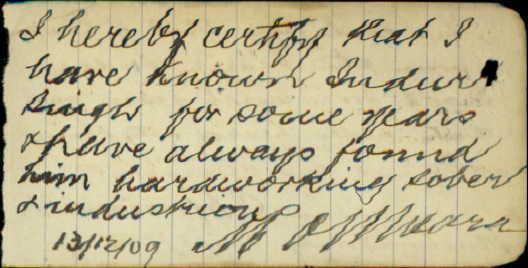 I hereby certify that I
have known Indur
Singh for some years
& have always found
him hardworking sober
& industrious
13/12/09 M